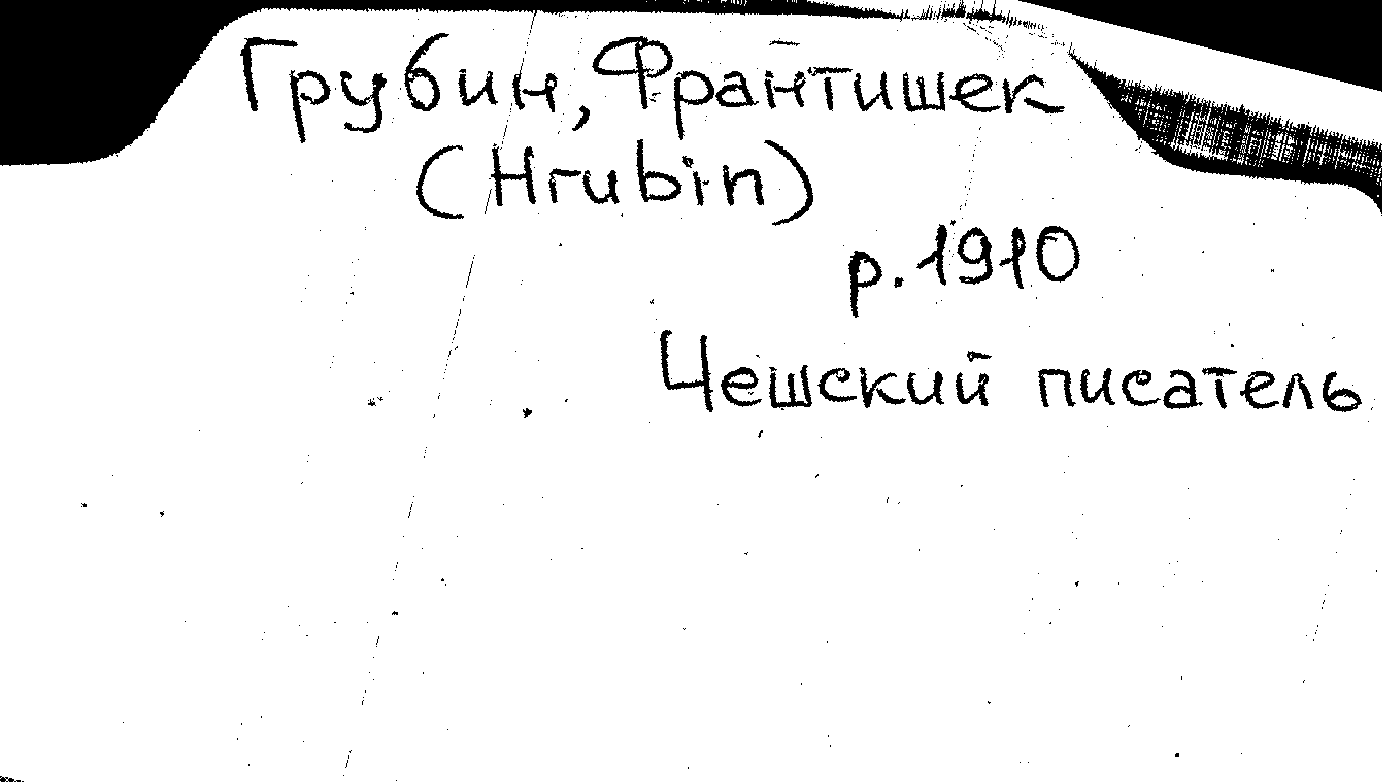 Грубин, Франтишек
(Hrubin)
р. 1910
Чешский писатель